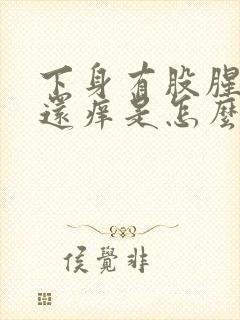 下身有股腥
還痒是怎麼
侯覺非